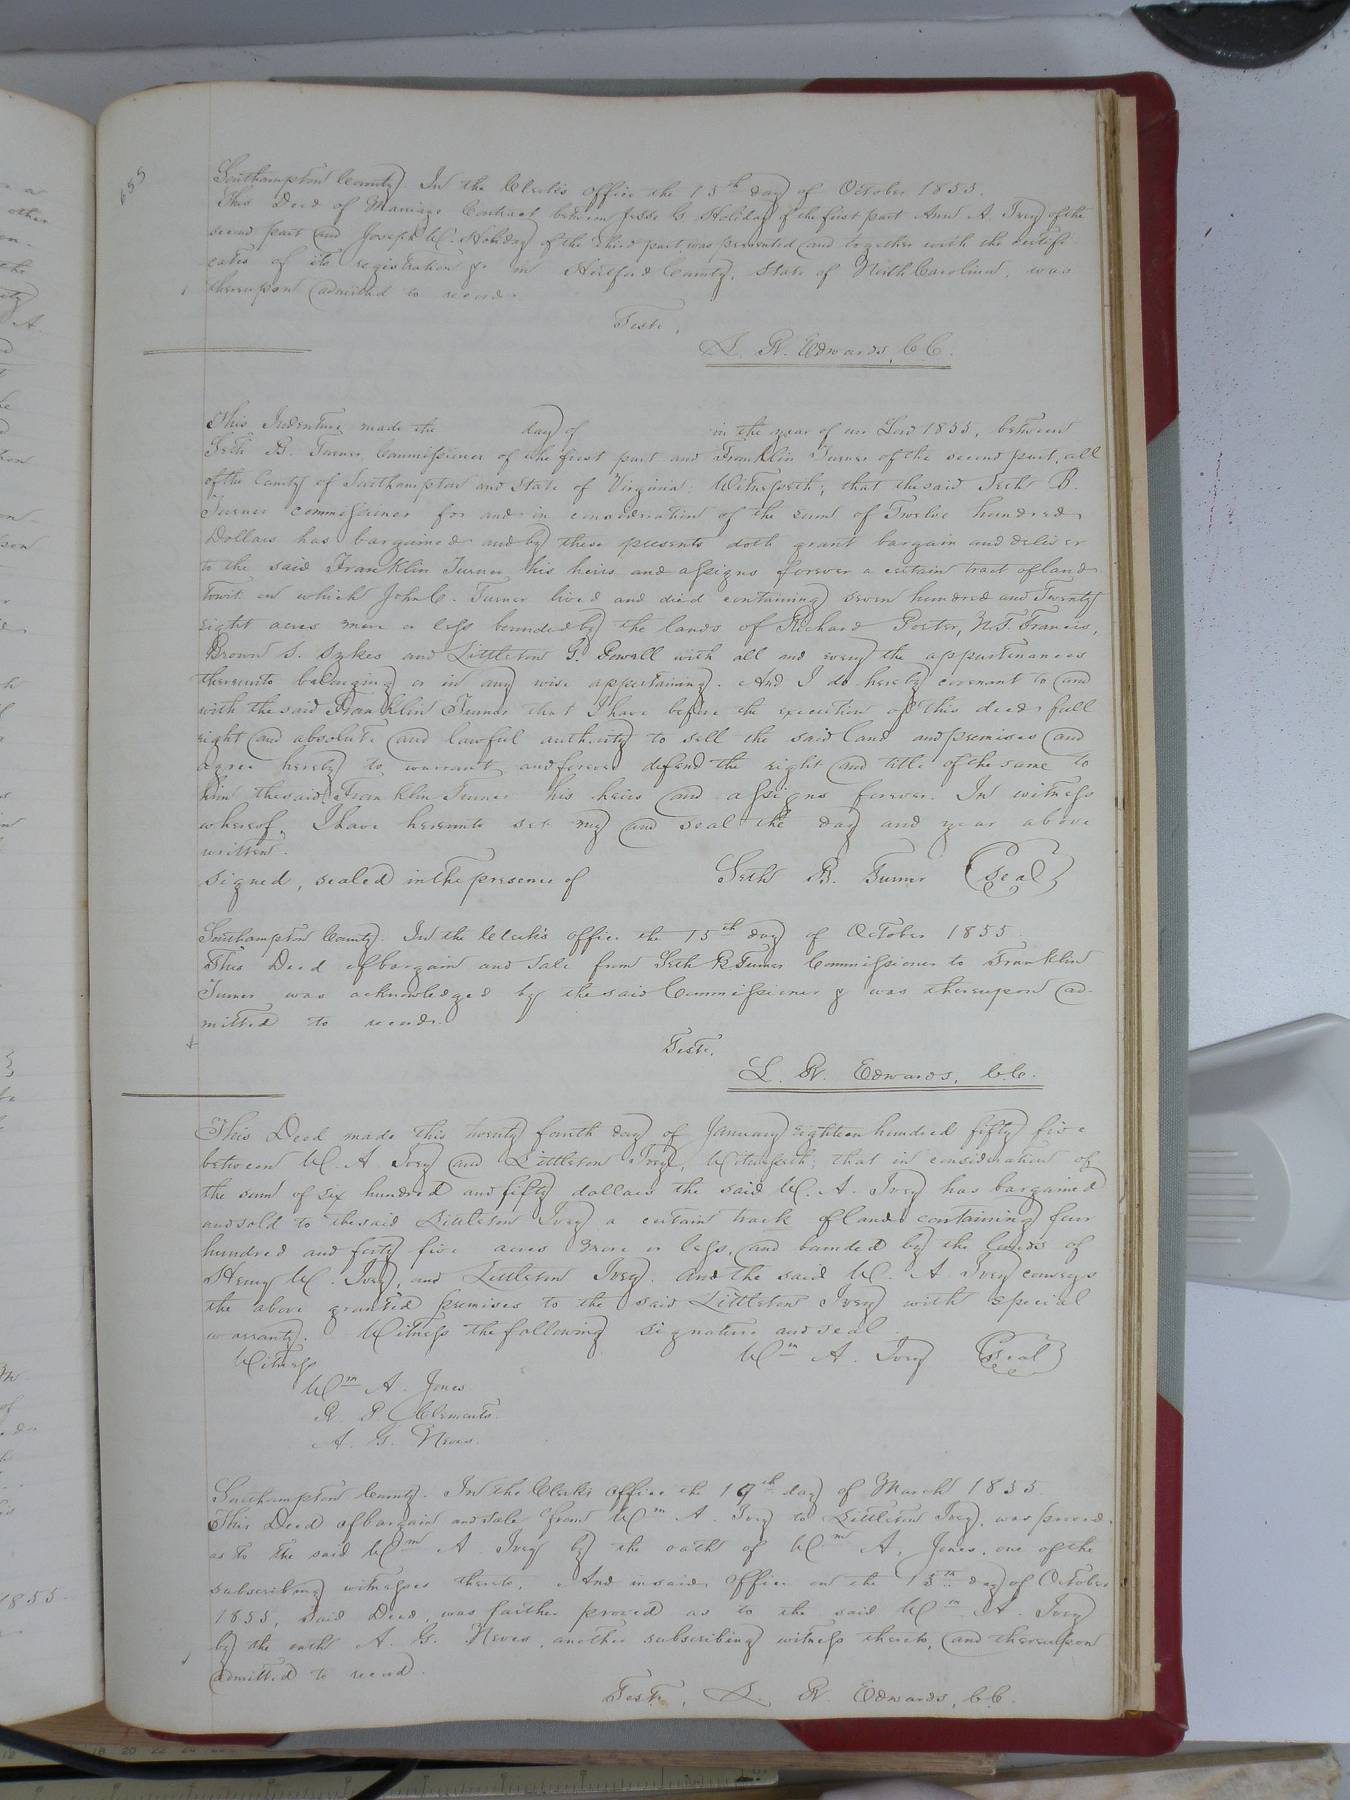 655
Southampton County. In the Clerk's office the 15th day of October 1855.
This Deed of Marriage Contract between Jesse G Holiday of the first part Ann A. Ivey of the
second part and Joseph W. Holiday of the third part was presented and together with the certifi
cates of its registration &c in Hertford County, State of North Carolina, was
thereupon admitted to record.
Teste,
L. R. Edwards, C.C.
This Indenture made the day of in the year of our Lord 1855, between
Seth B. Turner Commissioner of the first part and Franklin Turner of the second part, all
of the County of Southampton and State of Virginia: Witnesseth, that the said Seth B.
Turner commissioner for and in consideration of the sum of Twelve hundred
Dollars has bargained and by these presents doth grant bargain and deliver
to the said Franklin Turner his heirs and assigns forever a certain tract of land
towit: on which John C. Turner lived and died containing seven hundred and Twenty
eight acres more or less bounded by the lands of Richard Porter, N.T. Francis,
Brown S. Sykes and Littleton G. Powell with all and every the appurtenances
thereunto belonging or in any wise appertaining. And I do hereby covenant to and
with the said Franklin Turner that I have before the execution of this deed full
right and absolute and lawful authority to sell the said land and premises and
agree hereby to warrant and forever defend the right and title of the same to
him the said Franklin Turner his heirs and assigns forever. In witness
whereof, I have hereunto set my and seal the day and year above
written.
Signed, sealed in the presence of Seth B. Turner (Seal)
Southampton County. In the Clerk's office the 15th day of October 1855
This Deed of bargain and Sale from Seth B Turner Commissioner to Franklin
Turner was acknowledged by the said Commissioner & was thereupon ad-
mitted to record.
Teste,
L. R. Edwards, C.C.
This Deed made this twenty fourth day of January eighteen hundred fifty five
between W. A. Ivey and Littleton Ivey, Witnesseth; that in consideration of
the sum of six hundred and fifty dollars the said W. A. Ivey has bargained
and sold to the said Littleton Ivey a certain track of land containing four
hundred and forty five acres more or less, and bounded by the lands of
Henry W. Ivey, and Littleton Ivey. And the said W. A Ivey conveys
the above granted premises to the said Littleton Ivey with special
warranty. Witness the following signature and seal
Witness Wm A. Ivey (Seal)
Wm A. Jones
R. P. Clements
A. G. Neves
Southampton County. In the Clerk's office the 19th day of March 1855
This Deed of bargain and sale from Wm A. Ivey to Littleton Ivey, was proved
as to the said Wm A Ivey by the oath of Wm A. Jones, one of the
subscribing witnesses thereto, And in said office on the 15th day of October
1855, said Deed, was farther proved as to the said Wm A. Ivey
by the oath A. G. Neves, another subscribing witness thereto, and thereupon
admitted to record.
Teste, L. R. Edwards, C.C.